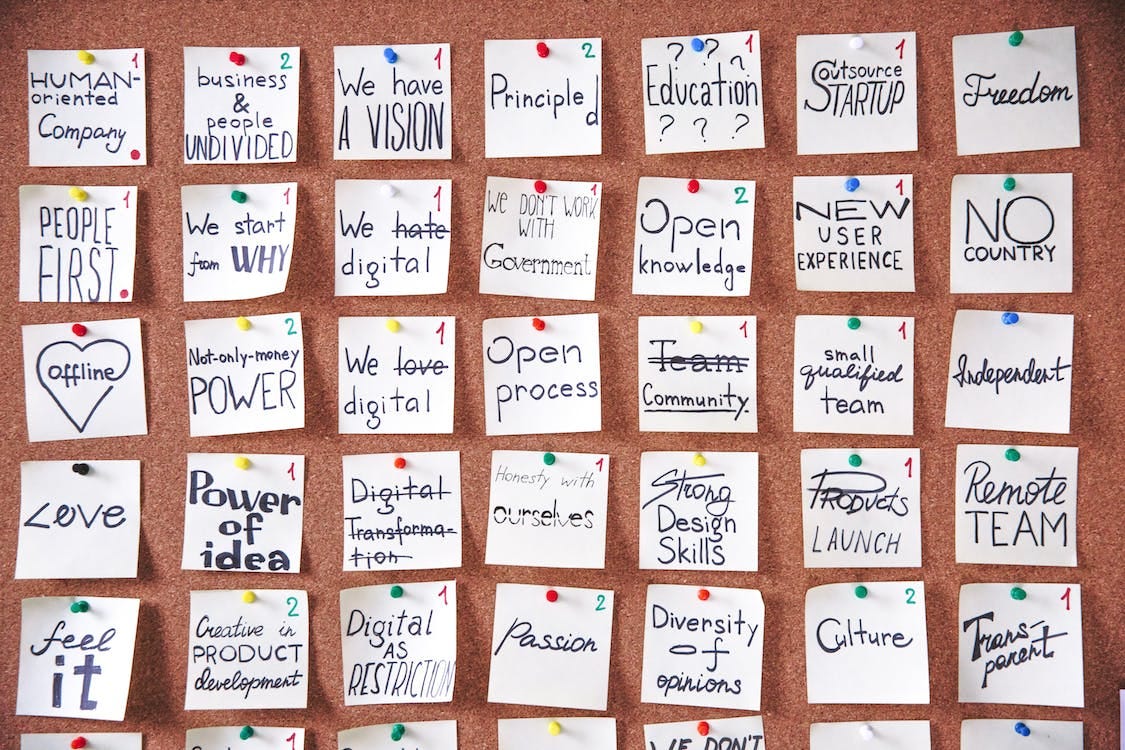 1
HUMAN-
oriented
Company
2
business
&
people
UNDIVIDED
1
We have
A VISION
2
Principle
d
1
? ? ?
Education
? ? ?
1
Outsource
STARTUP
Freedom
1
PEOPLE
FIRST
1
We start
from WHY
1
We hate
digital
1
We DON'T WORK
WITH
Government
2
Open
knowledge
1
NEW
USER
EXPERIENCE
NO
COUNTRY
offline
2
Not-only-money
POWER
1
We love
digital
Open
process
1
Team
Community
1
small
qualified
team
Independent
Love
1
Power
of
idea
Digital
Transforma-
tion
1
Honesty with
ourselves
Strong
Design
Skills
1
PRODUCTS
LAUNCH
Remote
TEAM
feel
it
2
Creative in
PRODUCT
development
1
Digital
AS
RESTRICTION
2
Passion
Diversity
of
opinions
2
Culture
1
Trans-
parent
1
WE DON'T